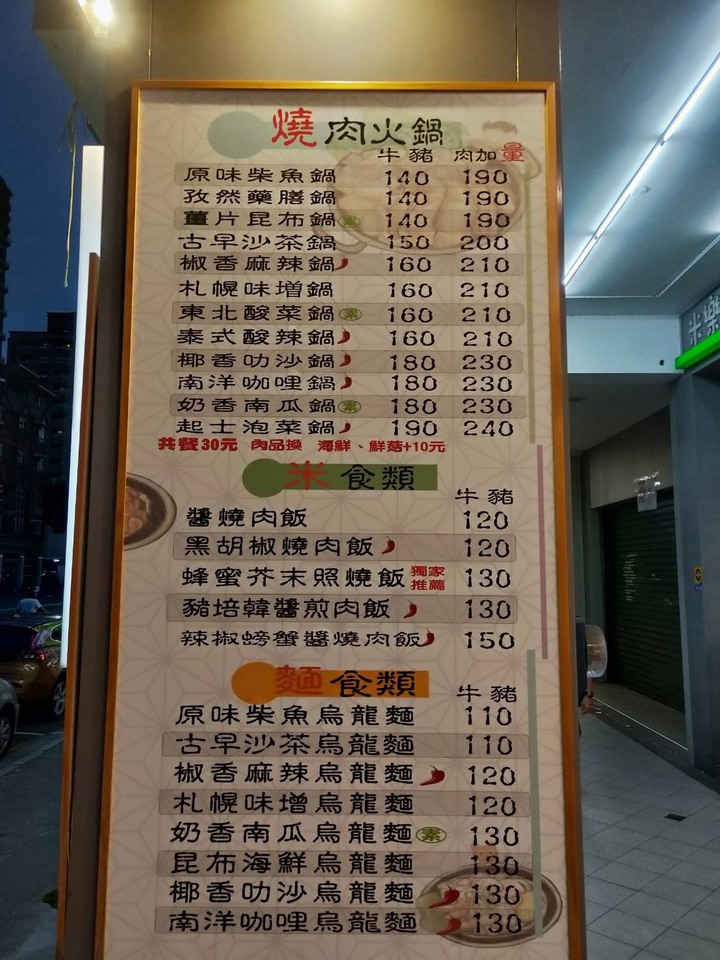 燒肉火鍋
牛豬 肉加量
原味柴魚鍋 140 190
孜然藥膳鍋 140 190
薑片昆布鍋 素 140 190
古早沙茶鍋 150 200
椒香麻辣鍋 160 210
札幌味增鍋 160 210
東北酸菜鍋 素 160 210
泰式酸辣鍋 160 210
椰香叻沙鍋 180 230
南洋咖哩鍋 180 230
奶香南瓜鍋 素 180 230
起士泡菜鍋 190 240
共餐30元 肉品換 海鮮、鮮菇+10元
米食類
牛豬
醬燒肉飯 120
黑胡椒燒肉飯 120
蜂蜜芥末照燒飯 獨家推薦 130
豬培韓醬煎肉飯 130
辣椒螃蟹醬燒肉飯 150
麵食類
牛豬
原味柴魚烏龍麵 110
古早沙茶烏龍麵 110
椒香麻辣烏龍麵 120
札幌味增烏龍麵 120
奶香南瓜烏龍麵 素 130
昆布海鮮烏龍麵 130
椰香叻沙烏龍麵 130
南洋咖哩烏龍麵 130
米樂